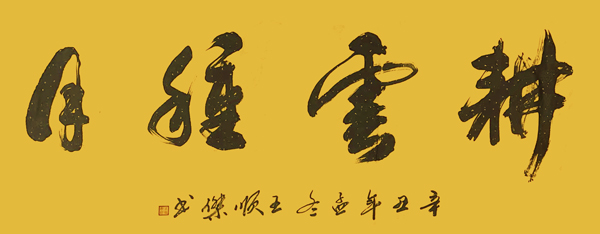 耕雲種月
辛丑年孟冬王順傑书